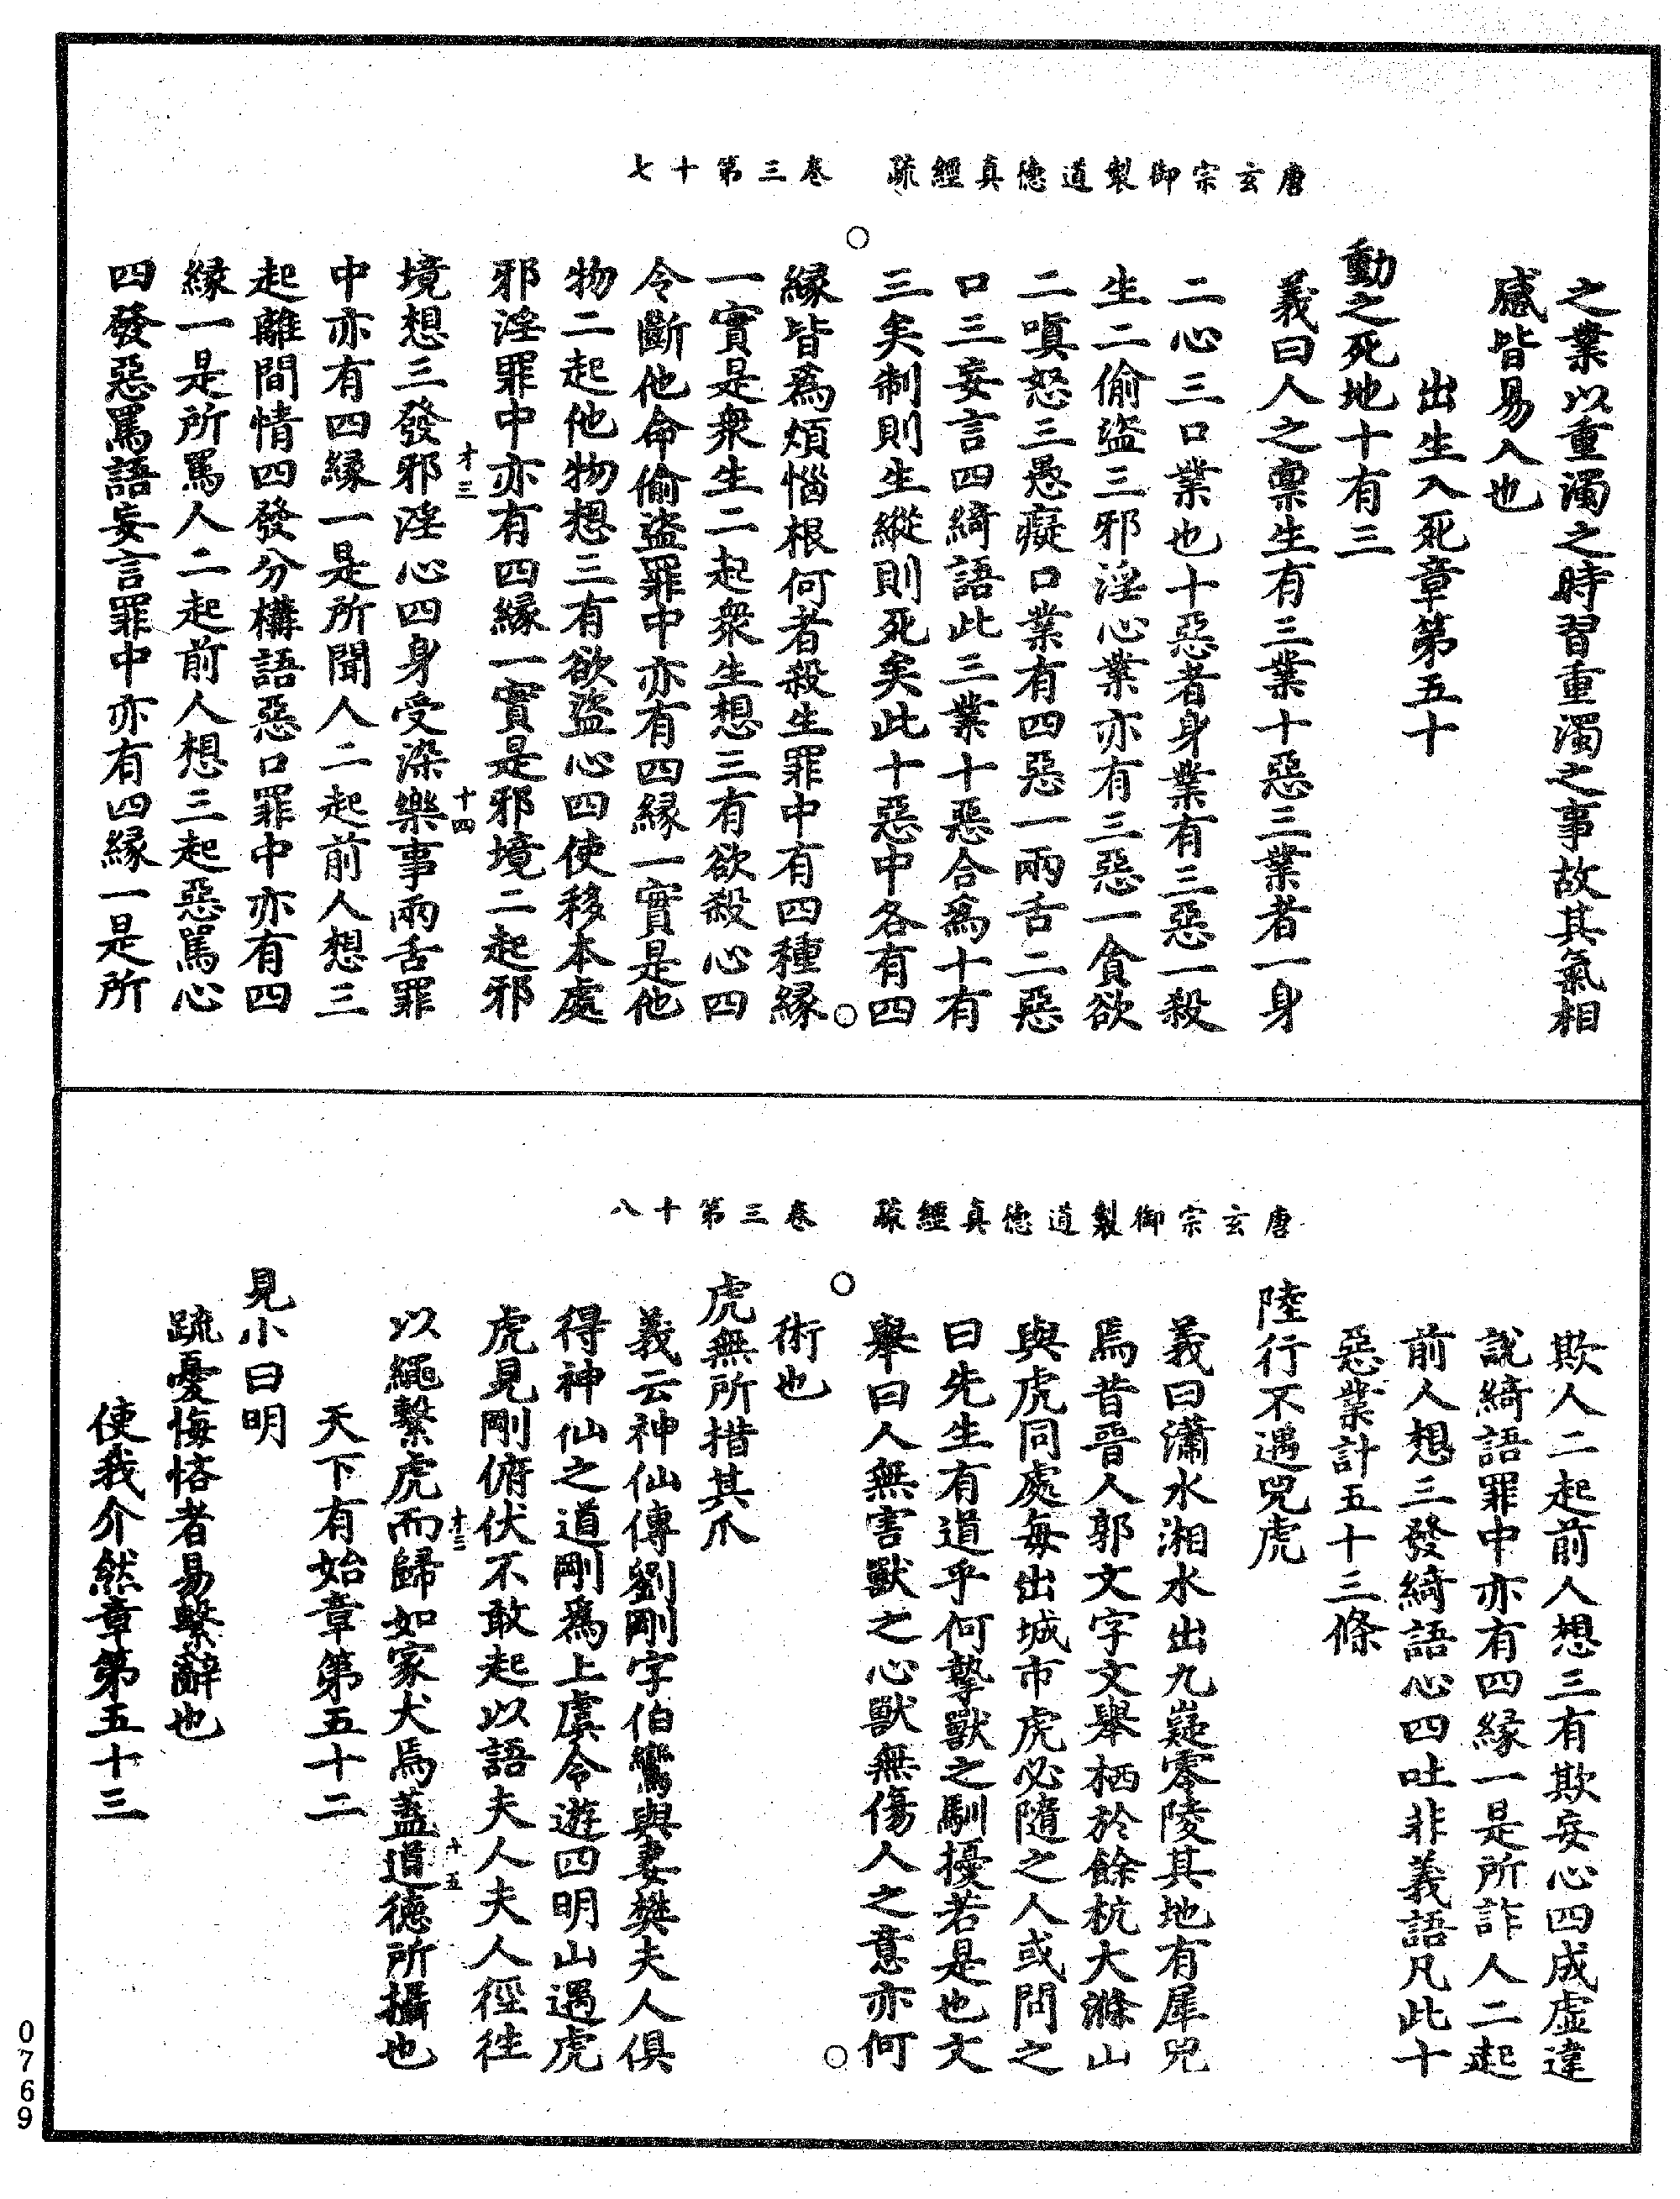 唐玄宗御製道德真經疏　卷三第十七
之業以重濁之時習重濁之事故其氣相
感皆易入也
出生入死章第五十
動之死地十有三
義曰人之禀生有三業十惡三業者一身
二心三口業也十惡者身業有三惡一殺
生二偷盜三邪淫心業亦有三惡一貪欲
二嗔怒三愚癡口業有四惡一兩舌二惡
口三妄言四綺語此三業十惡合爲十有
三矣制則生縱則死矣此十惡中各有四
緣皆爲煩惱根何者殺生罪中有四種緣
一實是衆生二起衆生想三有欲殺心四
令斷他命偷盜罪中亦有四緣一實是他
物二起他物想三有欲盜心四使移本處
邪淫罪中亦有四緣一實是邪境二起邪
才三
十四
境想三發邪淫心四身受染樂事兩舌罪
中亦有四緣一是所聞人二起前人想三
起離間情四發分構語惡口罪中亦有四
緣一是所罵人二起前人想三起惡罵心
四發惡罵語妄言罪中亦有四緣一是所
唐玄宗御製道德真經疏　卷三第十八
欺人二起前人想三有欺妄心四成虛違
說綺語罪中亦有四緣一是所詐人二起
前人想三發綺語心四吐非義語凡此十
惡業計五十三條
陸行不遇兕虎
義曰瀟水湘水出九嶷零陵其地有犀兕
焉昔晉人郭文字文舉栖於餘杭大滌山
與虎同處每出城市虎必隨之人或問之
曰先生有道乎何摯獸之馴擾若是也文
舉曰人無害獸之心獸無傷人之意亦何
術也
虎無所措其爪
義云神仙傳劉剛字伯鸞與妻樊夫人俱
得神仙之道剛爲上虞令遊四明山遇虎
虎見剛俯伏不敢起以語夫人夫人徑往
十三
十五
以繩繫虎而歸如家犬焉蓋道德所攝也
天下有始章第五十二
見小曰明
疏憂悔悋者易繫辭也
使我介然章第五十三
0769